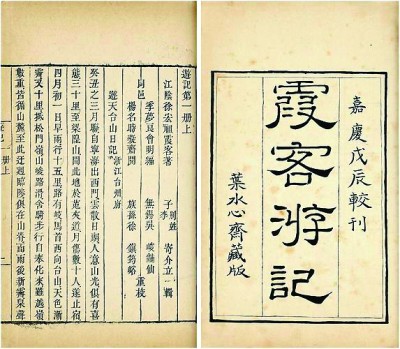 嘉慶戊辰較刊
霞客游記
葉水心齋藏版
遊記第一册上
江陰徐宏祖霞客著
子李寄介立輯
同邑
季夢良會明
楊名時
無錫吳峻
族孫徐鎮筠峪
遊天台山日記 浙江台州府
癸丑之三月晦自寧海出西門雲散日朗人意山光俱有喜
態三十里至梁隍山聞此地於菟夾道月傷數十人遂止宿
四月初一日早雨行十五里路有岐馬首西向台山天色漸
霽又十里抵松門嶺山峻路滑舍騎步行自奉化來雖越嶺
數重皆循山麓至此迂迴臨陟俱在山脊而雨後新霽泉聲